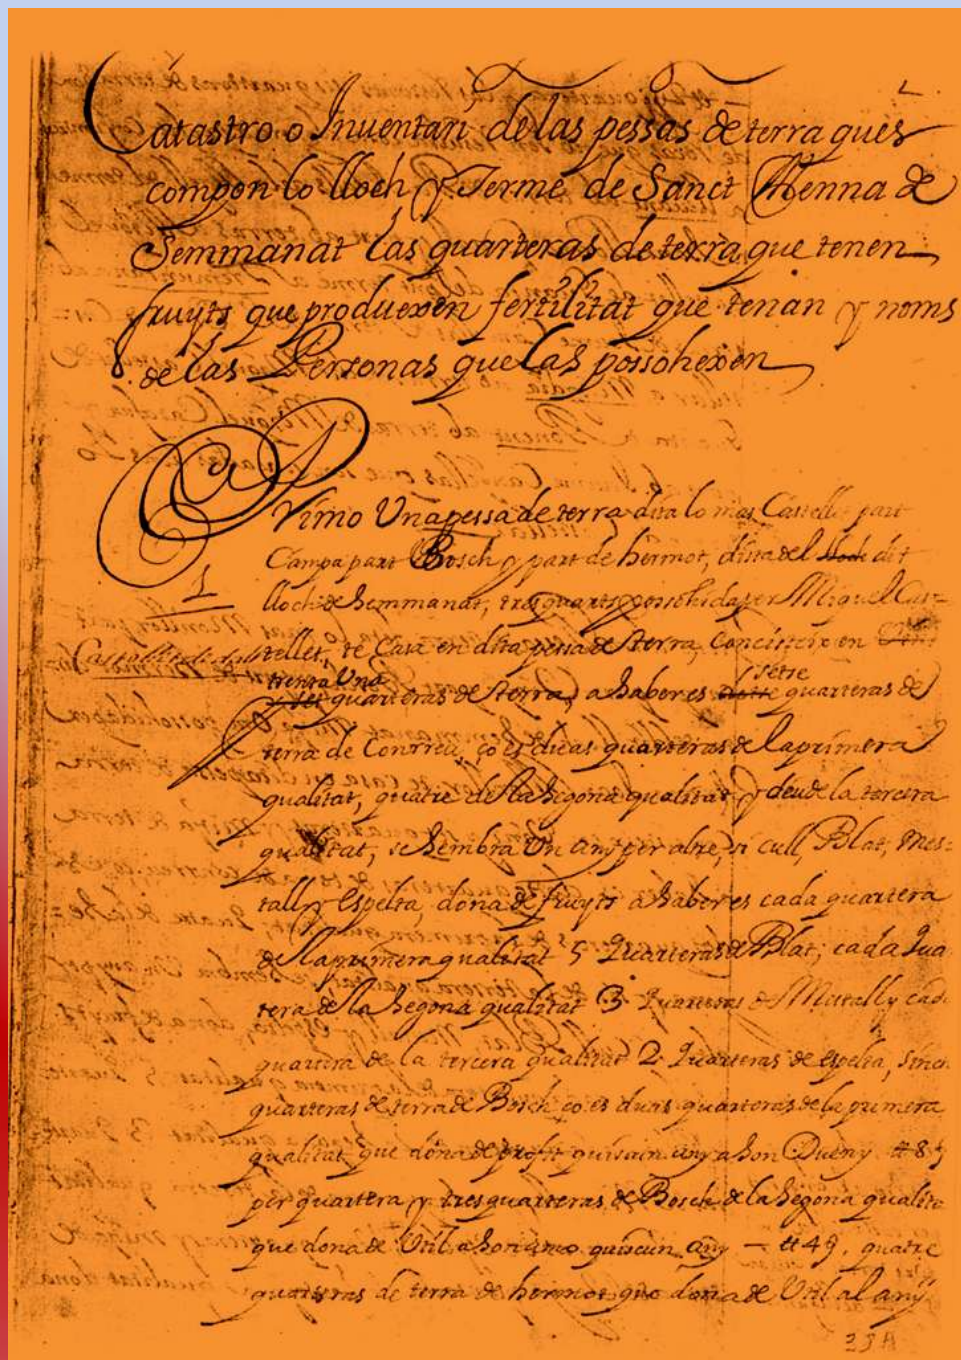 Catastro o Inventari de las pessas de terra ques
compon lo lloch y Terme de Sanct Menna de
Semmanat las quarteras de terra que tenen
fruyts que produexen fertilitat que tenan y noms
de las Personas que las possohexen
Primo Una pessa de terra dita lo mas Castellet part
Campa part Bosch y part de hermot, dista del lloch dit
1
lloch de Semmanat, tres quarts possohida per Miquel Cas=
tellet, te Casa en dita pessa de terra, Concisteix en
trenta Una setze
quarteras de terra, a saber es quarteras de
terra de Conrreu, ço es duas quarteras de la primera
qualitat, quatre de la segona qualitat y deu de la tercera
qualitat, se sembra Un any per altre, si cull, Blat, Mes=
tall y Espelta, dona de fruyts a saber es cada quartera
de la primera qualitat 5 Quarteras de Blat; cada Qua
tera de la segona qualitat 3 Quarteras de Mestall y cada
quartera de la tercera qualitat 2 Quarteras de espelta,
quarteras de terra de Bosch ço es duas quarteras de la primera
qualitat que dona de profit quiscun any a son Dueny
per quartera y tres quarteras de Bosch de la segona qualita
que dona de Util a son amo quiscun any quatre
quarteras de terra de hermot que dona de Util al any